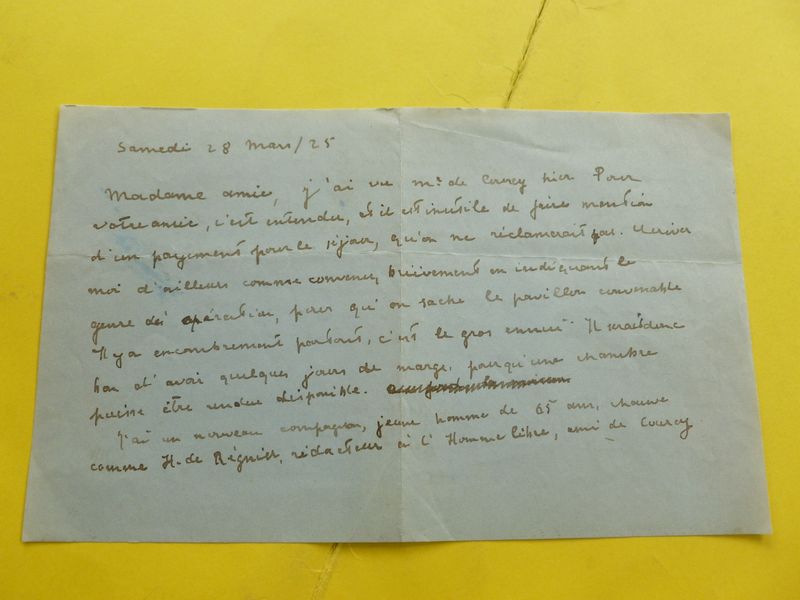 Samedi 28 Mars/25
Madame amie, j'ai vu Mr de Courcy hier Pour
votre amie, c'est entendu, et il est inutile de faire mention
d'un payement pour le séjour, qu'on ne réclamerait pas. Ecrivez
moi d'ailleurs comme convenu, brièvement en indiquant le
genre des opération, pour qu'on sache le pavillon convenable
Il y a encombrement partout, c'est le gros ennui Il serait donc
bon d'avoir quelques jours de marge, pour qu'une chambre
puisse être rendue disponible.
J'ai un nouveau compagnon, jeune homme de 65 ans, chauve
comme H. de Régnier, rédacteur à l'Homme libre, ami de Courcy